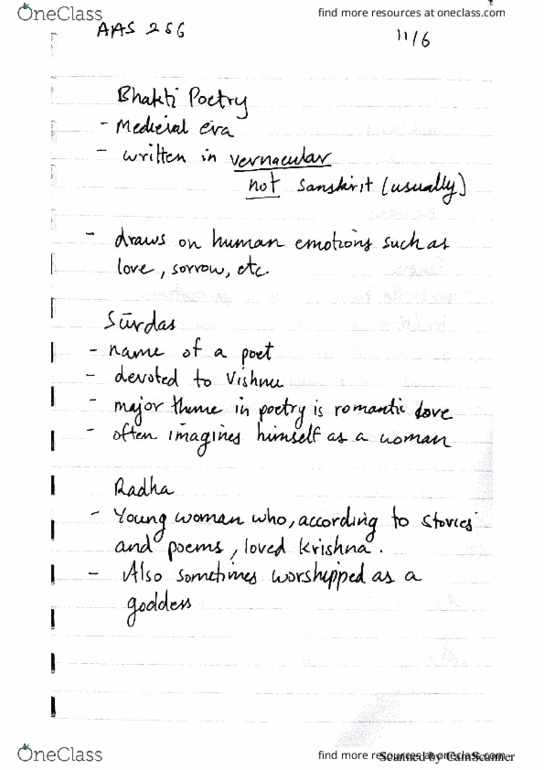 OneClass
find more resources at oneclass.com
AAS 256
11/6
Bhakti Poetry
- Medieval era
- written in vernacular
not Sanskirit (usually)
- draws on human emotions such as
love, sorrow, etc.
Sūrdas
- name of a poet
- devoted to Vishnu
- major theme in poetry is romantic love
- often imagines himself as a woman
Radha
- Young woman who, according to stories
and poems, loved Krishna.
- Also sometimes worshipped as a
goddess
OneClass
find more resources at oneclass.com
Scanned by CamScanner